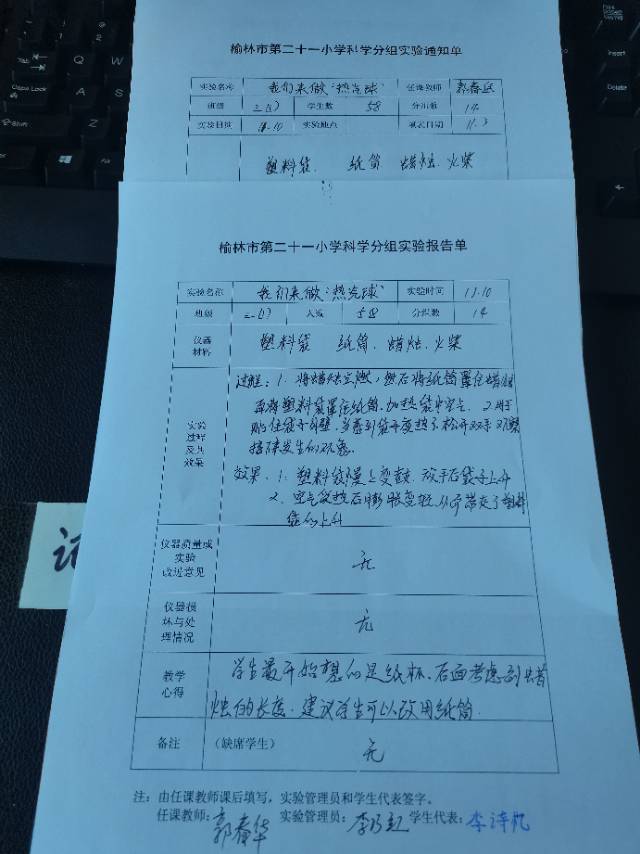 榆林市第二十一小学科学分组实验通知单
实验名称 我们来做"热气球" 任课教师
班级 三(7) 学生数 58 分组数 14
实验日期 11.10 实验地点 填表日期 11.3
塑料袋、纸筒、蜡烛、火柴
榆林市第二十一小学科学分组实验报告单
实验名称 我们来做"热气球" 实验时间 11.10
班级 三(7) 人数 58 分组数 14
仪器材料 塑料袋 纸筒、蜡烛、火柴
实验过程及其效果
过程:1、将蜡烛点燃,然后将纸筒罩住蜡烛
再将塑料袋罩住纸筒,加热袋中空气、2.用手
贴住袋子外壁,等感到袋子变热了松开双手观察
接下来发生的现象。
效果、1、塑料袋慢慢变鼓、放手后袋子上升
2、空气受热后膨胀变轻,从而带来了塑料
袋的上升
仪器质量或实验改进意见 无
仪器损坏与处理情况 无
教学心得 学生最开始想的是纸杯、后面考虑到蜡
烛的长度、建议学生可以改用纸筒.
备注 (缺席学生) 无
注:由任课教师课后填写,实验管理员和学生代表签字。
任课教师:郭春华 实验管理员: 学生代表:李诗帆